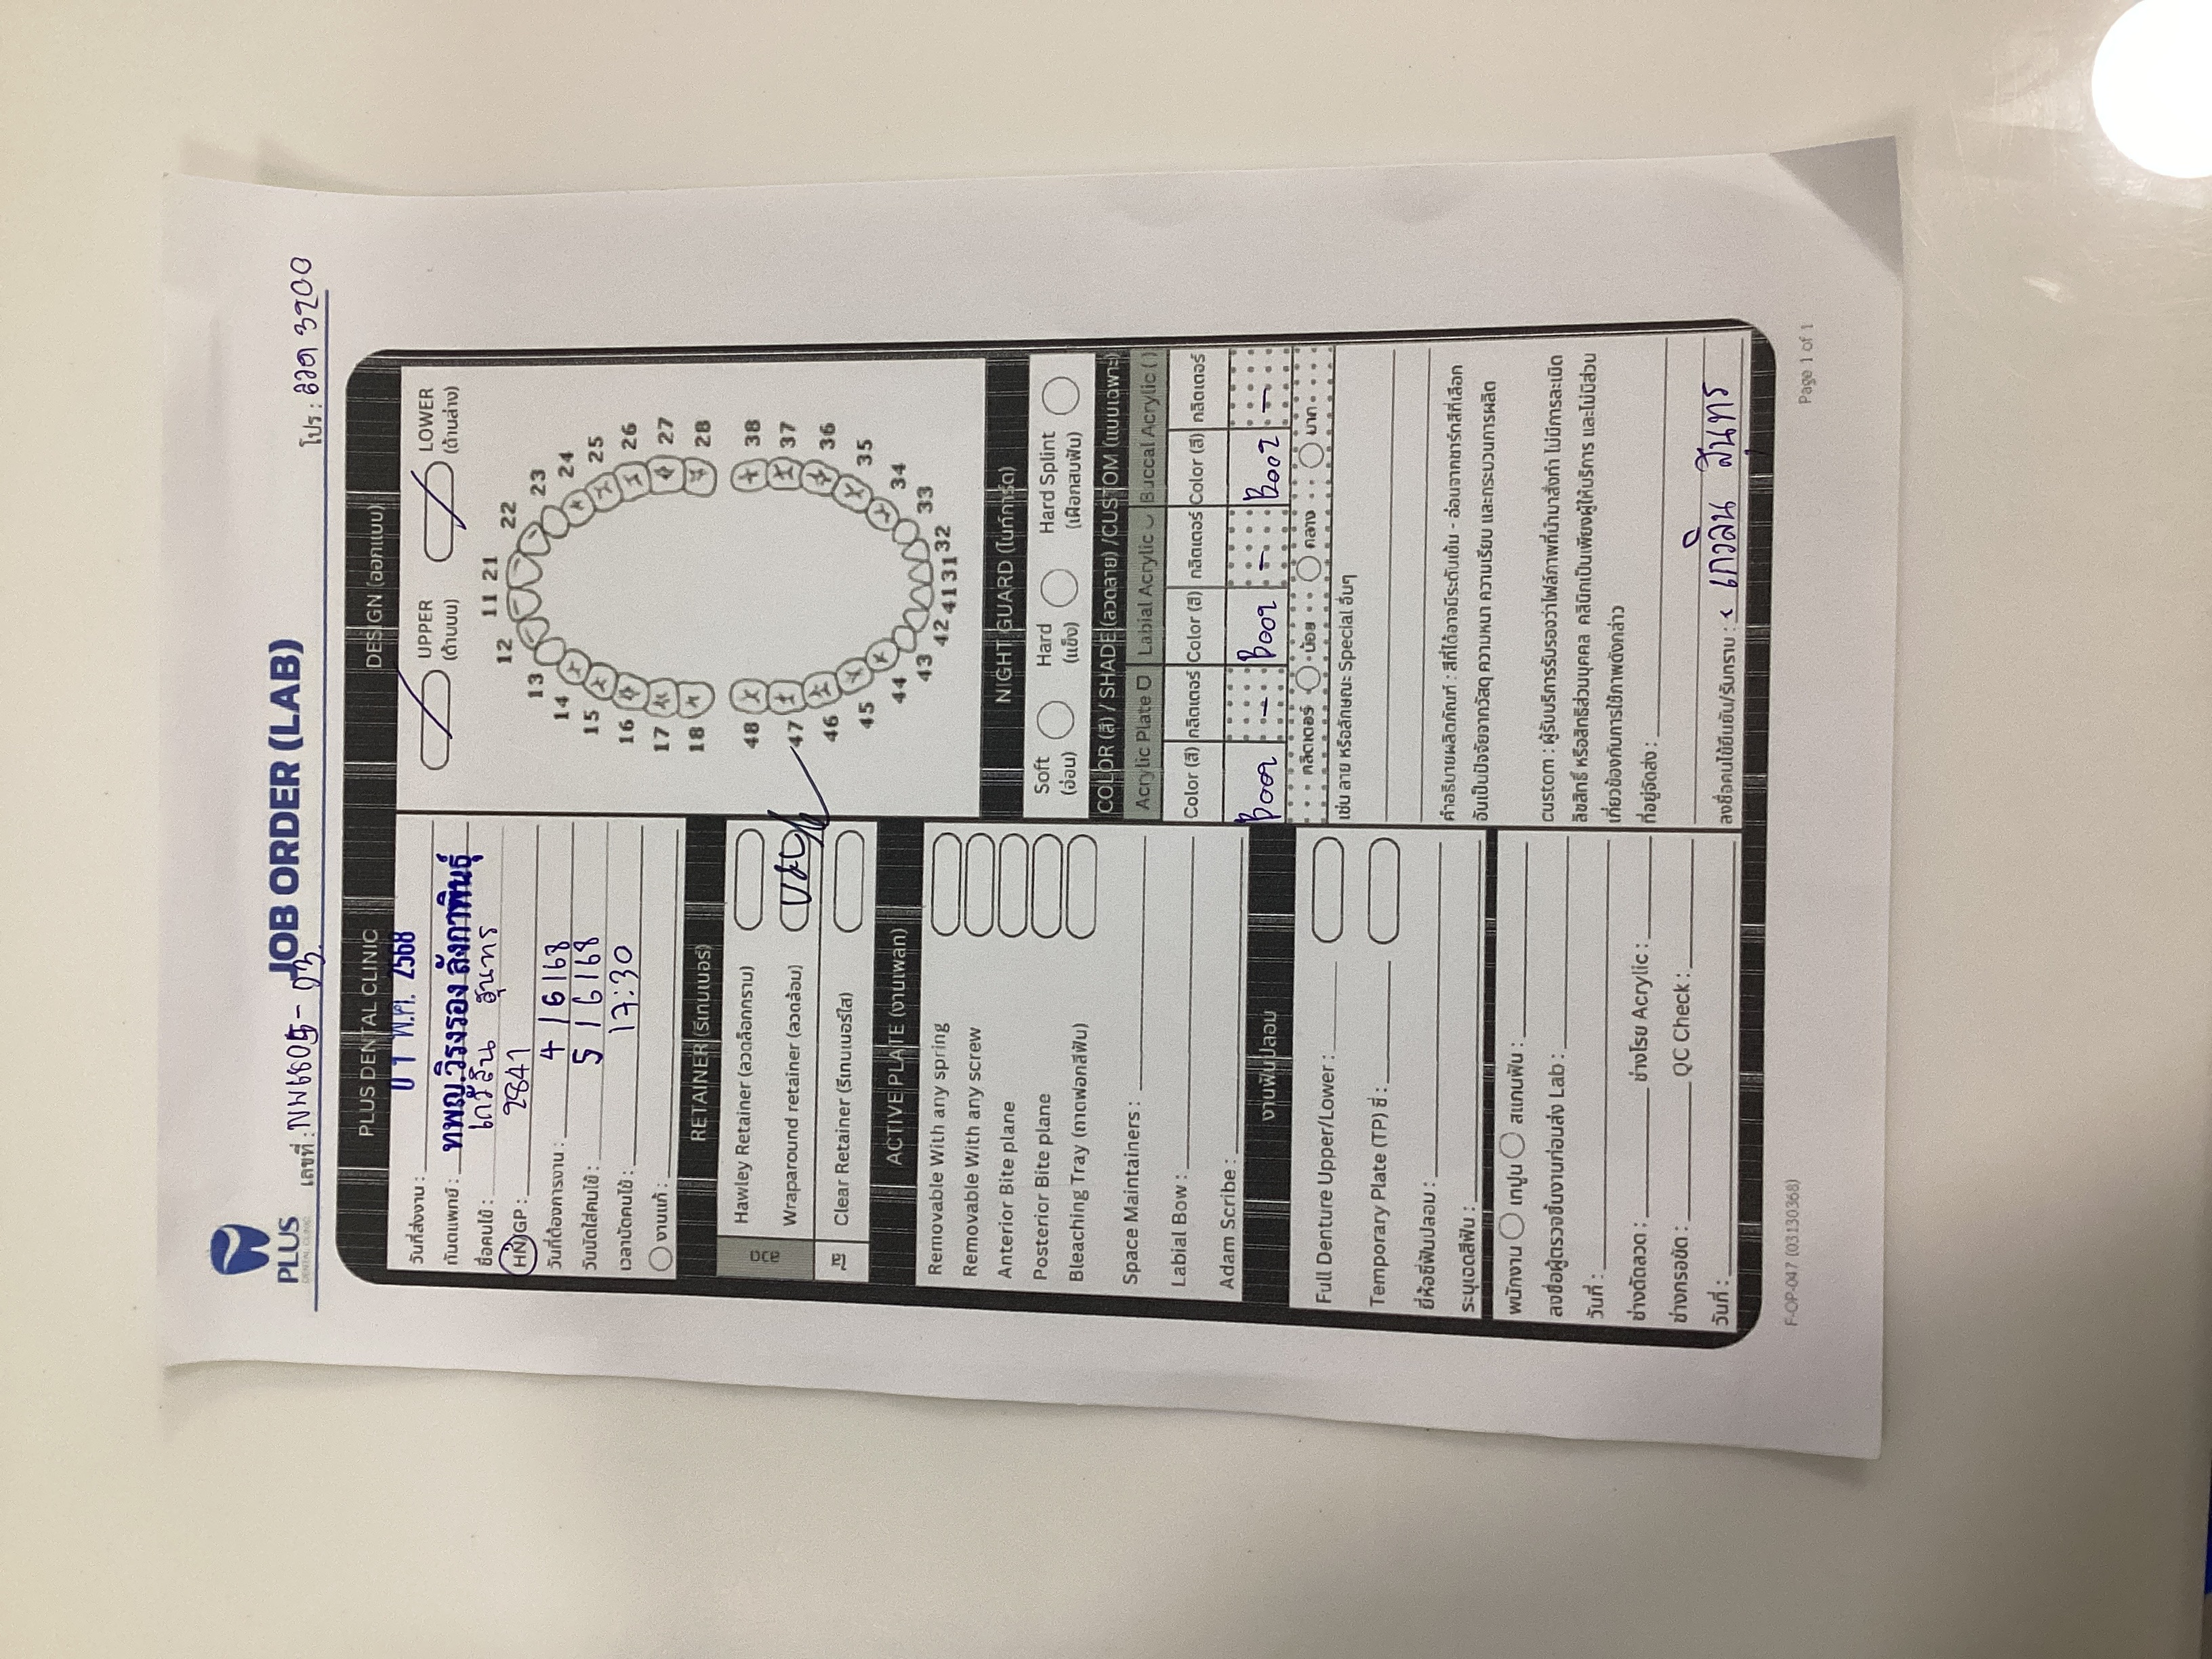 PLUS
DENTAL CLINIC
JOB ORDER (LAB)
เลขที่ : NW6805-03
โปร : ลวด 3200
PLUS DENTAL CLINIC
วันที่ส่งงาน : 01 พ.ค. 2568
ทันตแพทย์ : ทพญ.วิรงรอง ลังกาพินธุ์
ชื่อคนไข้ : เกวลิน สุนทร
HN/GP : 2841
วันที่ต้องการงาน : 4/6/68
วันนัดใส่คนไข้ : 5/6/68
เวลานัดคนไข้ : 17:30
งานแก้ :
RETAINER (รีเทนเนอร์)
ลวด
Hawley Retainer (ลวดล็อกกราม)
Wraparound retainer (ลวดล้อม) U&L
ใส
Clear Retainer (รีเทนเนอร์ใส)
ACTIVE PLATE (งานเพลท)
Removable With any spring
Removable With any screw
Anterior Bite plane
Posterior Bite plane
Bleaching Tray (ถาดฟอกสีฟัน)
Space Maintainers :
Labial Bow :
Adam Scribe :
งานฟันปลอม
Full Denture Upper/Lower :
Temporary Plate (TP) ซี่ :
ยี่ห้อซี่ฟันปลอม :
ระบุเฉดสีฟัน :
พนักงาน เทปูน สแกนฟัน :
ลงชื่อผู้ตรวจชิ้นงานก่อนส่ง Lab :
วันที่ :
ช่างดัดลวด : ช่างโรย Acrylic :
ช่างกรอขัด : QC Check :
วันที่ :
DESIGN (ออกแบบ)
UPPER
(ด้านบน)
LOWER
(ด้านล่าง)
11 21
12 22
13 23
14 24
15 25
16 26
17 27
18 28
48 38
47 37
46 36
45 35
44 34
43 33
42 41 31 32
NIGHT GUARD (ไนท์การ์ด)
Soft
(อ่อน)
Hard
(แข็ง)
Hard Splint
(เฝือกสบฟัน)
COLOR (สี) / SHADE (ลวดลาย) /CUSTOM (แบบเฉพาะ)
Acrylic Plate Labial Acrylic Buccal Acrylic ( )
Color (สี) กลิตเตอร์ Color (สี) กลิตเตอร์ Color (สี) กลิตเตอร์
B002 - B002 - B002 -
กลิตเตอร์ น้อย กลาง มาก
เช่น ลาย หรือลักษณะ Special อื่นๆ
คำอธิบายผลิตภัณฑ์ : สีที่ได้อาจมีระดับเข้ม - อ่อนจากชาร์ทสีที่เลือก
อันเป็นปัจจัยจากวัสดุ ความหนา ความเรียบ และกระบวนการผลิต
custom : ผู้รับบริการรับรองว่าไฟล์ภาพที่นำมาสั่งทำ ไม่มีการละเมิด
ลิขสิทธิ์ หรือสิทธิส่วนบุคคล คลินิกเป็นเพียงผู้ให้บริการ และไม่มีส่วน
เกี่ยวข้องกับการใช้ภาพดังกล่าว
ที่อยู่จัดส่ง :
ลงชื่อคนไข้ยืนยัน/รับทราบ : เกวลิน สุนทร
F-OP-047 (03130368)
Page 1 of 1